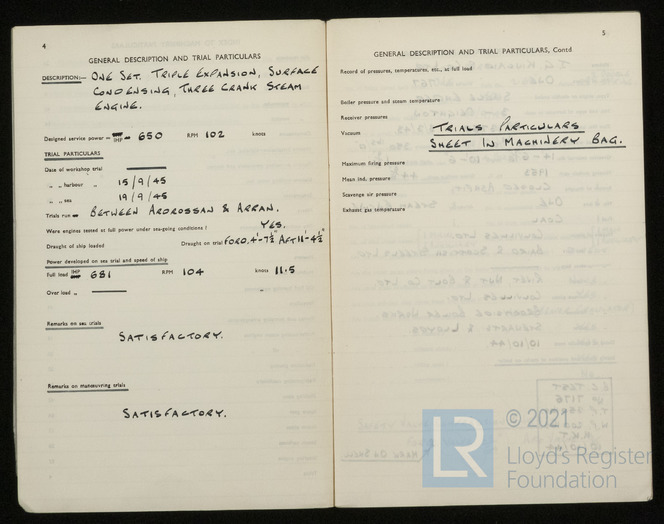 4
GENERAL DESCRIPTION AND TRIAL PARTICULARS
DESCRIPTION:— ONE SET, TRIPLE EXPANSION, SURFACE
CONDENSING, THREE CRANK STEAM
ENGINE.
Designed service power = IHP = 650 RPM 102 knots
TRIAL PARTICULARS
Date of workshop trial
„ „ harbour „ 15/9/45
„ „ sea „ 19/9/45
Trials run = BETWEEN ARDROSSAN & ARRAN.
Were engines tested at full power under sea-going conditions? YES.
Draught of ship loaded Draught on trial FORD. 4'-7½" AFT 11'-4½"
Power developed on sea trial and speed of ship
Full load IHP 681 RPM 104 knots 11.5
Over load „
Remarks on sea trials
SATISFACTORY.
Remarks on manœuvring trials
SATISFACTORY.
5
GENERAL DESCRIPTION AND TRIAL PARTICULARS, Contd
Record of pressures, temperatures, etc., at full load
Boiler pressure and steam temperature
Receiver pressures
Vacuum
TRIALS PARTICULARS
SHEET IN MACHINERY BAG.
Maximum firing pressure
Mean ind. pressure
Scavenge air pressure
Exhaust gas temperature
LR © 2021
Lloyd's Register
Foundation